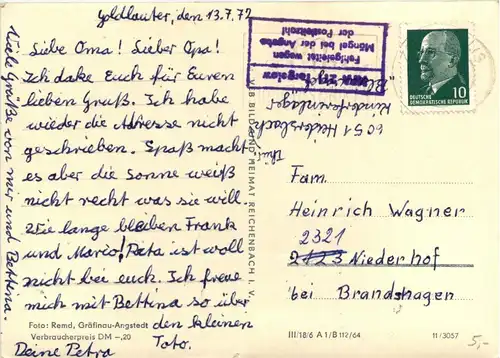 Goldlauter, den 13.7.72
Liebe Oma! Lieber Opa!
Ich danke Euch für Euren
lieben Gruß. Ich habe
wieder die Adresse nicht
geschrieben. Spaß macht
es aber die Sonne weiß
nicht recht was sie will.
Wie lange bleiben Frank
und Mario! Rita ist woll
nicht bei euch. Ich freue
mich mit Bettina so über
den kleinen
Toto.
Deine Petra
Viele Grüße von mir und Bettina.
Foto: Remd, Gräfinau-Angstedt
Verbraucherpreis DM –,20
VEB BILD UND HEIMAT REICHENBACH I. V.
III/18/6 A 1/B 112/64
11/3057
Fehlgeleitet wegen
Mängel bei der Angabe
der Postleitzahl
DEUTSCHE
DEMOKRATISCHE REPUBLIK
10
6051 Heidersbach
Kinderferienlager
Fam.
Heinrich Wagner
2321
2123 Niederhof
bei Brandshagen
5,-